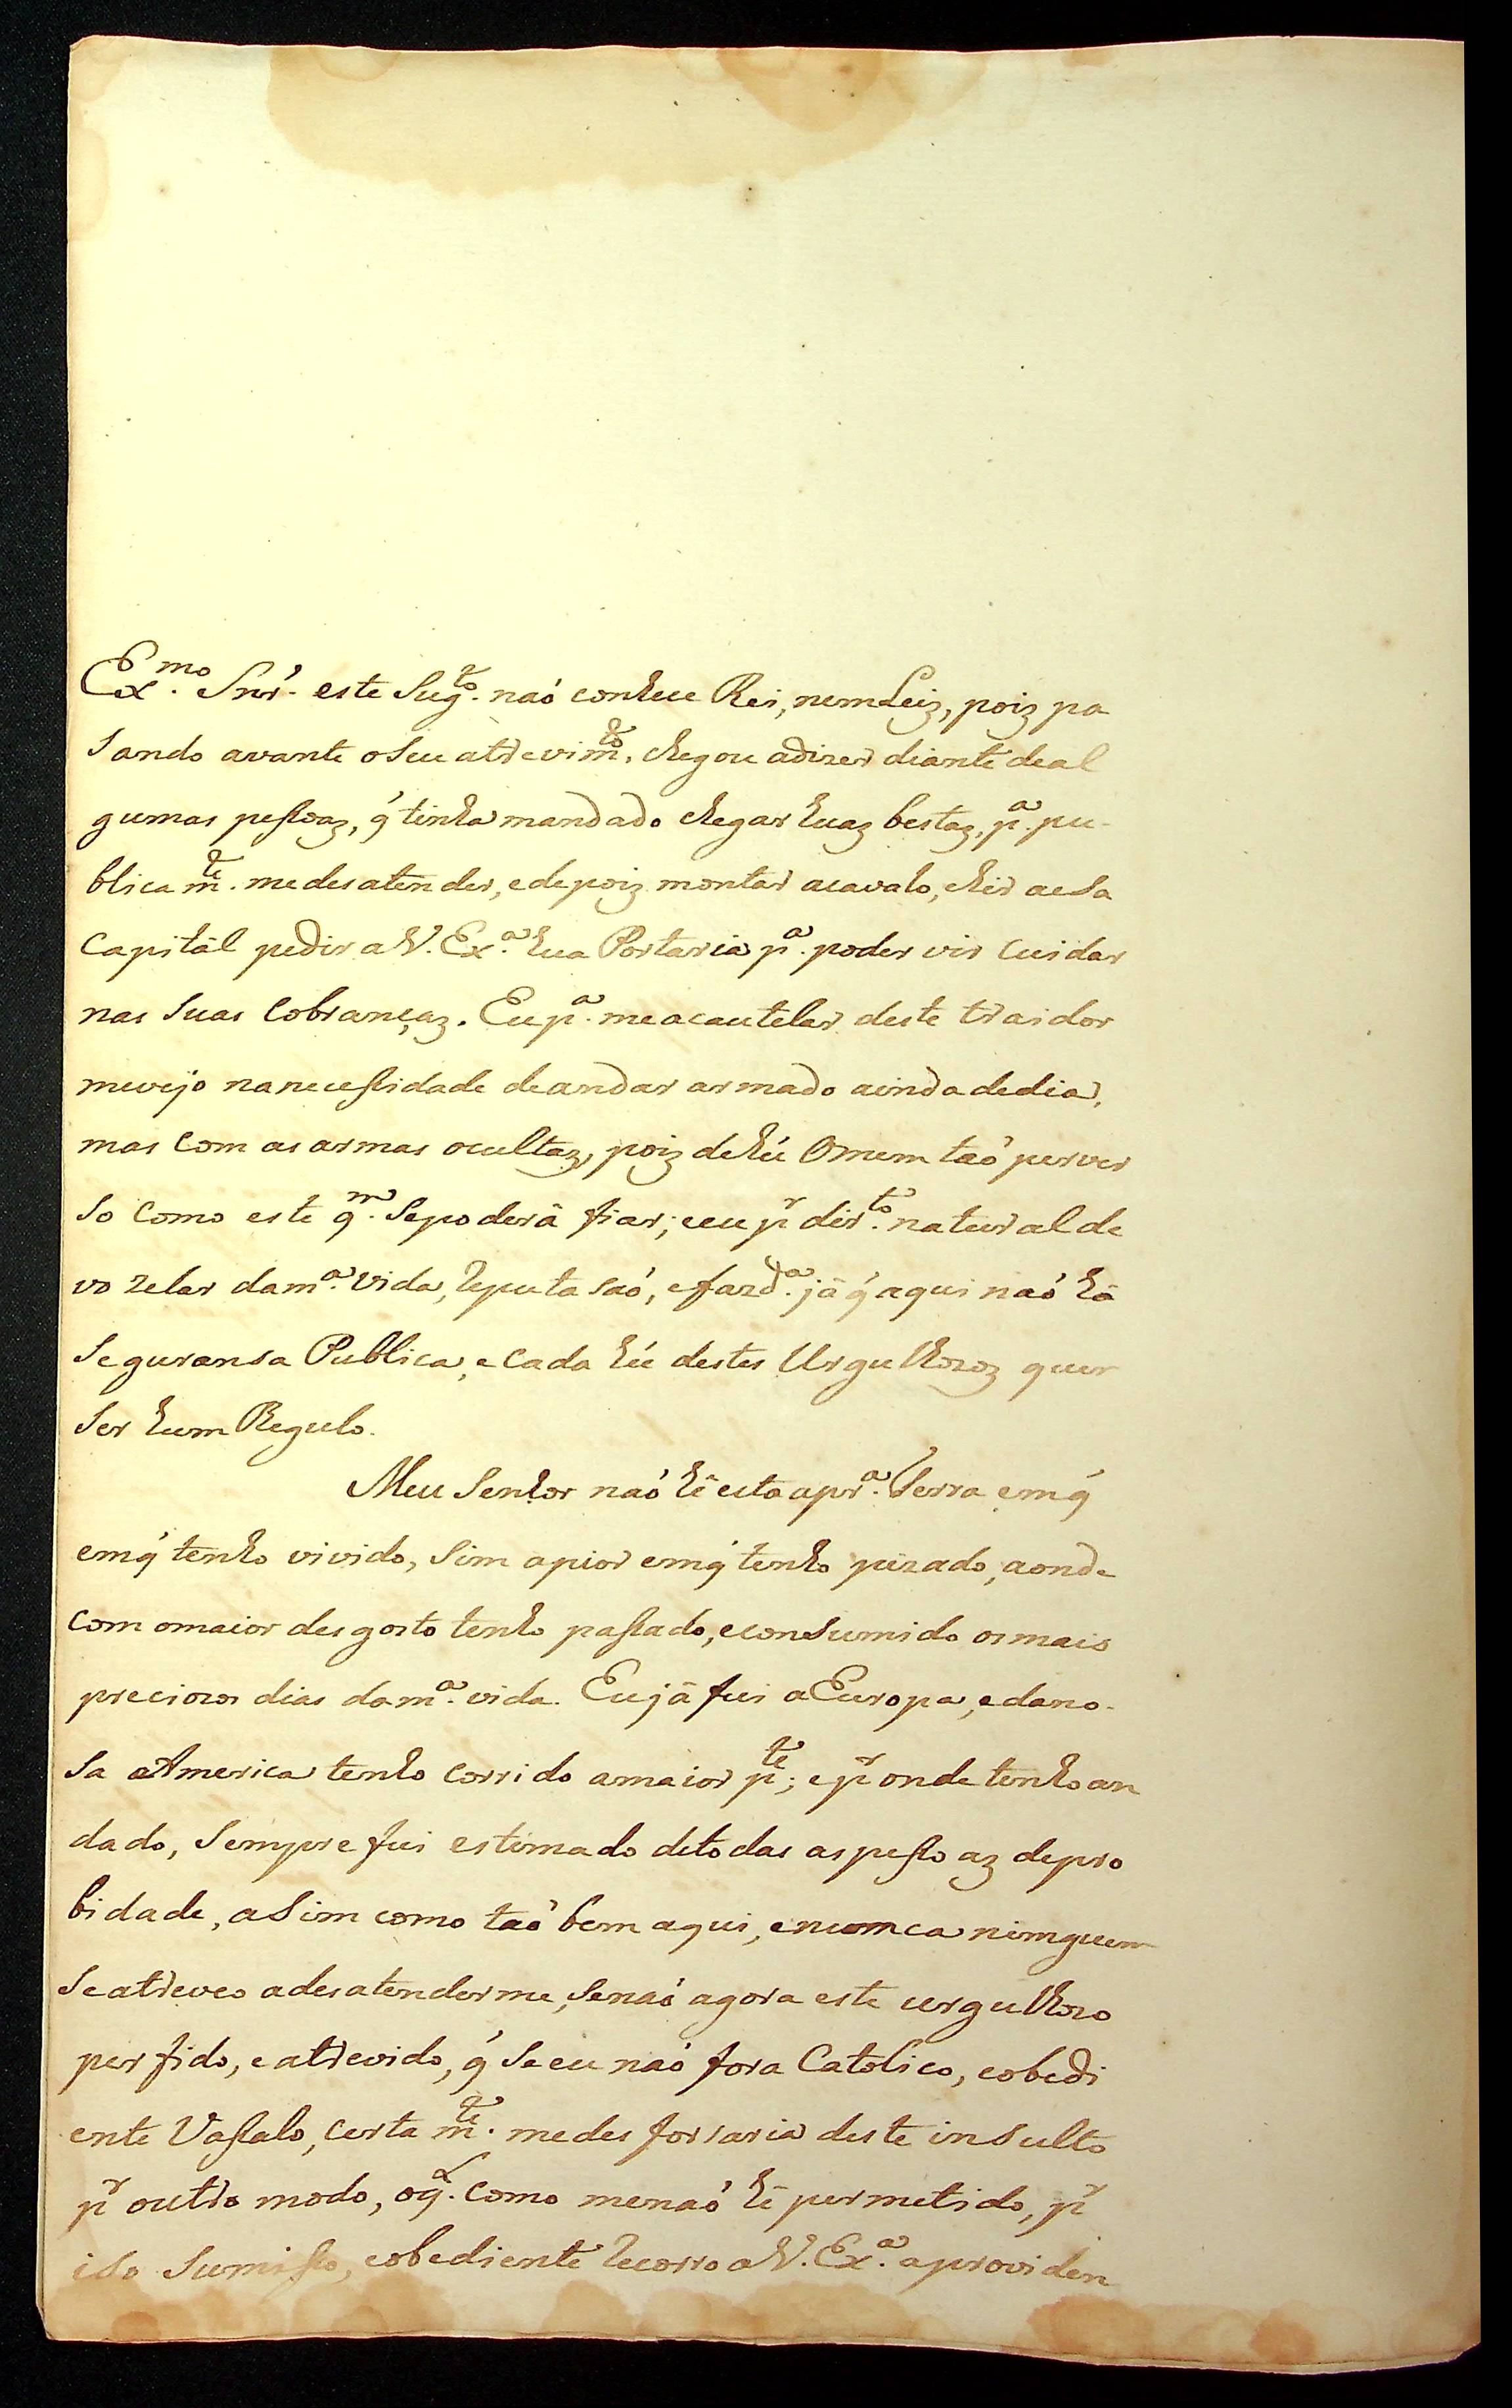 Ex.mo Snr̃. este Sug.to naó conhece Rei, nem Leiz, poiz pa
sando avante o seu atrevim.to, chegou adizer diante deal
gumas pessoaz, q́ tinha mandado chegar huaz bestaz, p.a pu-
blicam.te medesatender, edepoiz montar acavalo, ehir aesa
Capitál pedir a V. Ex.a hua Portaria p.a poder vir cuidar
nas suas Cobrançaz. Eu p.a meacautelar deste traidor
mevejo nanecessidade deandar armado ainda dedia,
mas com as armas ocultaz, poiz dehú Omem taó perver
so como este q.m sepoderâ fiar; eeu pr̃ dir.to natural de
vo zelar dam.a vida, reputasaó, efazd.a jâ q́ aqui naó hâ
seguransa Publica, e cada hú destes Urgulhozoz quer
ser hum Regulo.
Meu Senhor naó hê esta apr.a Terra emq́
emq́ tenho vivido, sim apior emq́ tenho pizado, aonde
com omaior desgosto tenho passado, econsumido osmais
preciozos dias dam.a vida. Eujâ fui aEuropa, edano-
sa America tenho corrido amaior p.te; epr̃ onde tenho an
dado, sempre fui estimado detodas aspessoaz depro
bidade, asim como taó bem aqui, enumca nimguem
seatreveo adesatenderme, senaó agora este urgulhozo
perfido, eatrevido, q́ seeu naó fora Catolico, eobedi
ente Vassalo, certam.te medesforsaria deste insulto
pr̃ outro modo, oq.l como menaó hê permetido, pr̃
iso sumisso, eobediente recorro a V. Ex.a aproviden